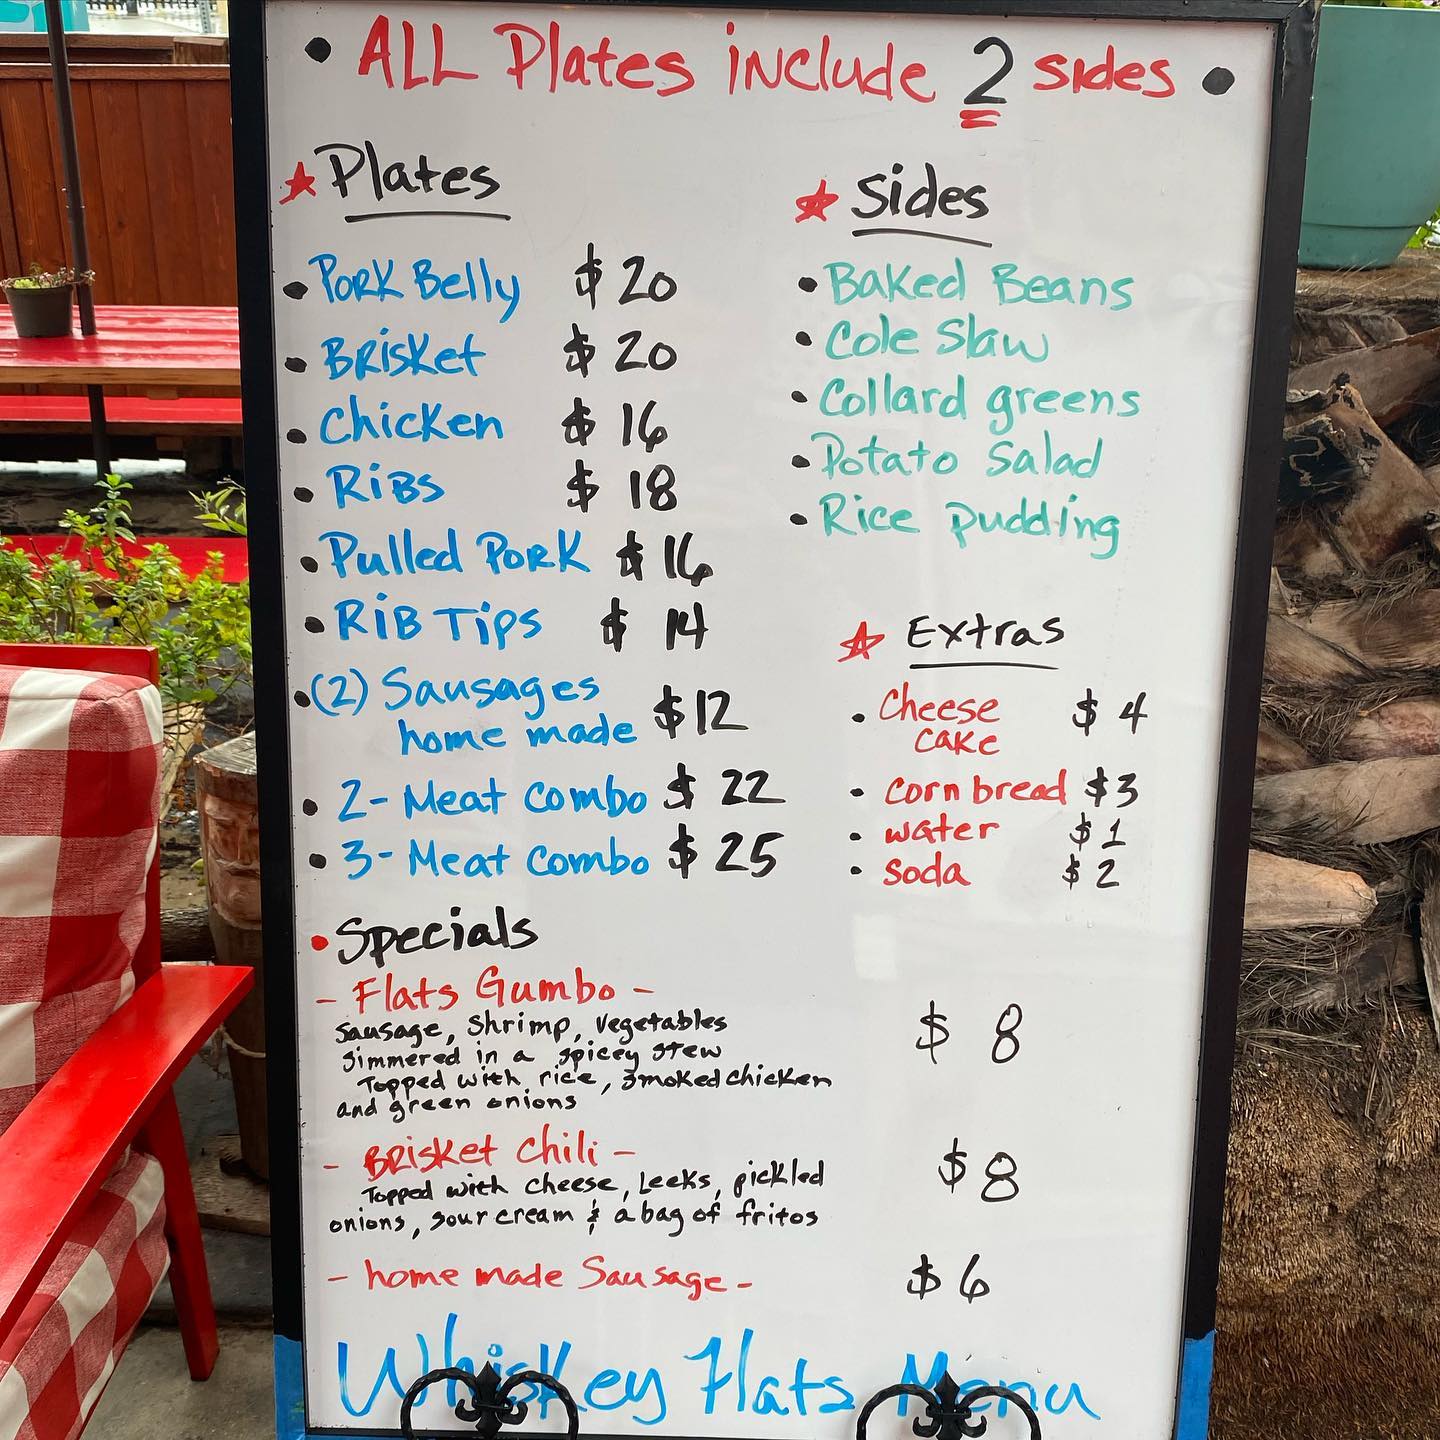 • ALL Plates include 2 sides •
★ Plates
• Pork Belly $ 20
• Brisket $ 20
• Chicken $ 16
• Ribs $ 18
• Pulled Pork $ 16
• Rib Tips $ 14
• (2) Sausages
home made $12
• 2- Meat combo $ 22
• 3- Meat combo $ 25
★ Sides
• Baked Beans
• Cole Slaw
• Collard greens
• Potato Salad
• Rice pudding
★ Extras
• Cheese
cake $ 4
• corn bread $3
• water $ 1
• soda $ 2
• Specials
- Flats Gumbo -
Sausage, Shrimp, Vegetables
Simmered in a spicey stew
Topped with rice, smoked chicken
and green onions
$ 8
- Brisket Chili -
Topped with cheese, Leeks, pickled
onions, sour cream & a bag of fritos
$ 8
- home made Sausage - $ 6
Whiskey Flats Menu